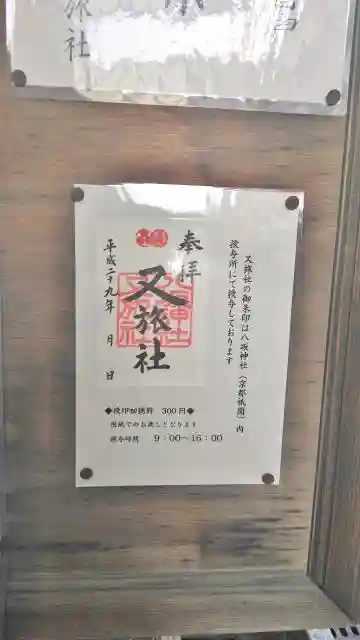 旅社
又旅社の御朱印は八坂神社（京都祇園）内
授与所にて授与しております
奉拝
又旅社
平成二十九年　月　日
◆授印初穂料　300円◆
用紙でのお渡しとなります
授与時間　9：00～16：00